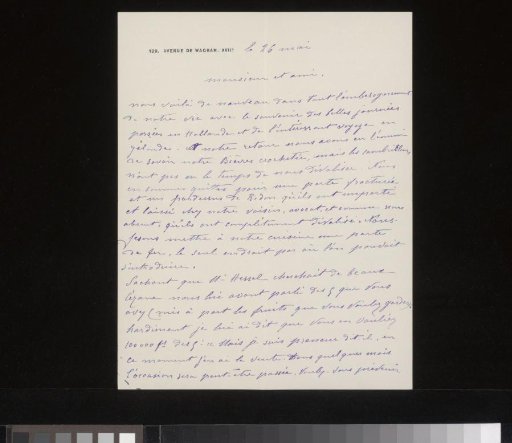 129, AVENUE DE WAGRAM. XVIIe le 26 mai
Monsieur et ami.
nous voilà de nouveau dans tout l'embesognement
de notre vie avec le souvenir des belles journées
passées en Hollande et de l'intéressant voyage en
Zélande. A notre retour nous avons eu l'ennui
de savoir notre Bièvres crochetée, mais les cambrioleurs
n'ont pas eu le temps de nous dévaliser. Nous
en sommes quittes pour une porte fracturée
et un pardessus de Redon qu'ils ont emporté
et laissé chez notre voisin, avocat, et comme nous
absent, qu'ils ont complètement dévalisé. Nous
fesons mettre à notre cuisine une porte
de fer, le seul endroit par où l'on pouvait
s'introduire.
Sachant que Mr Hessel cherchait de beaux
Cézanne nous lui avons parlé des 5 que vous
avez (mis à part les fruits que vous voulez garder
hardiment je lui ai dit que vous en vouliez
100000 fs des 5: Mais je suis preneur dit-il, en
ce moment j'en ai la vente. Dans quelques mois
l'occasion sera peut-être passée. Voulez-vous